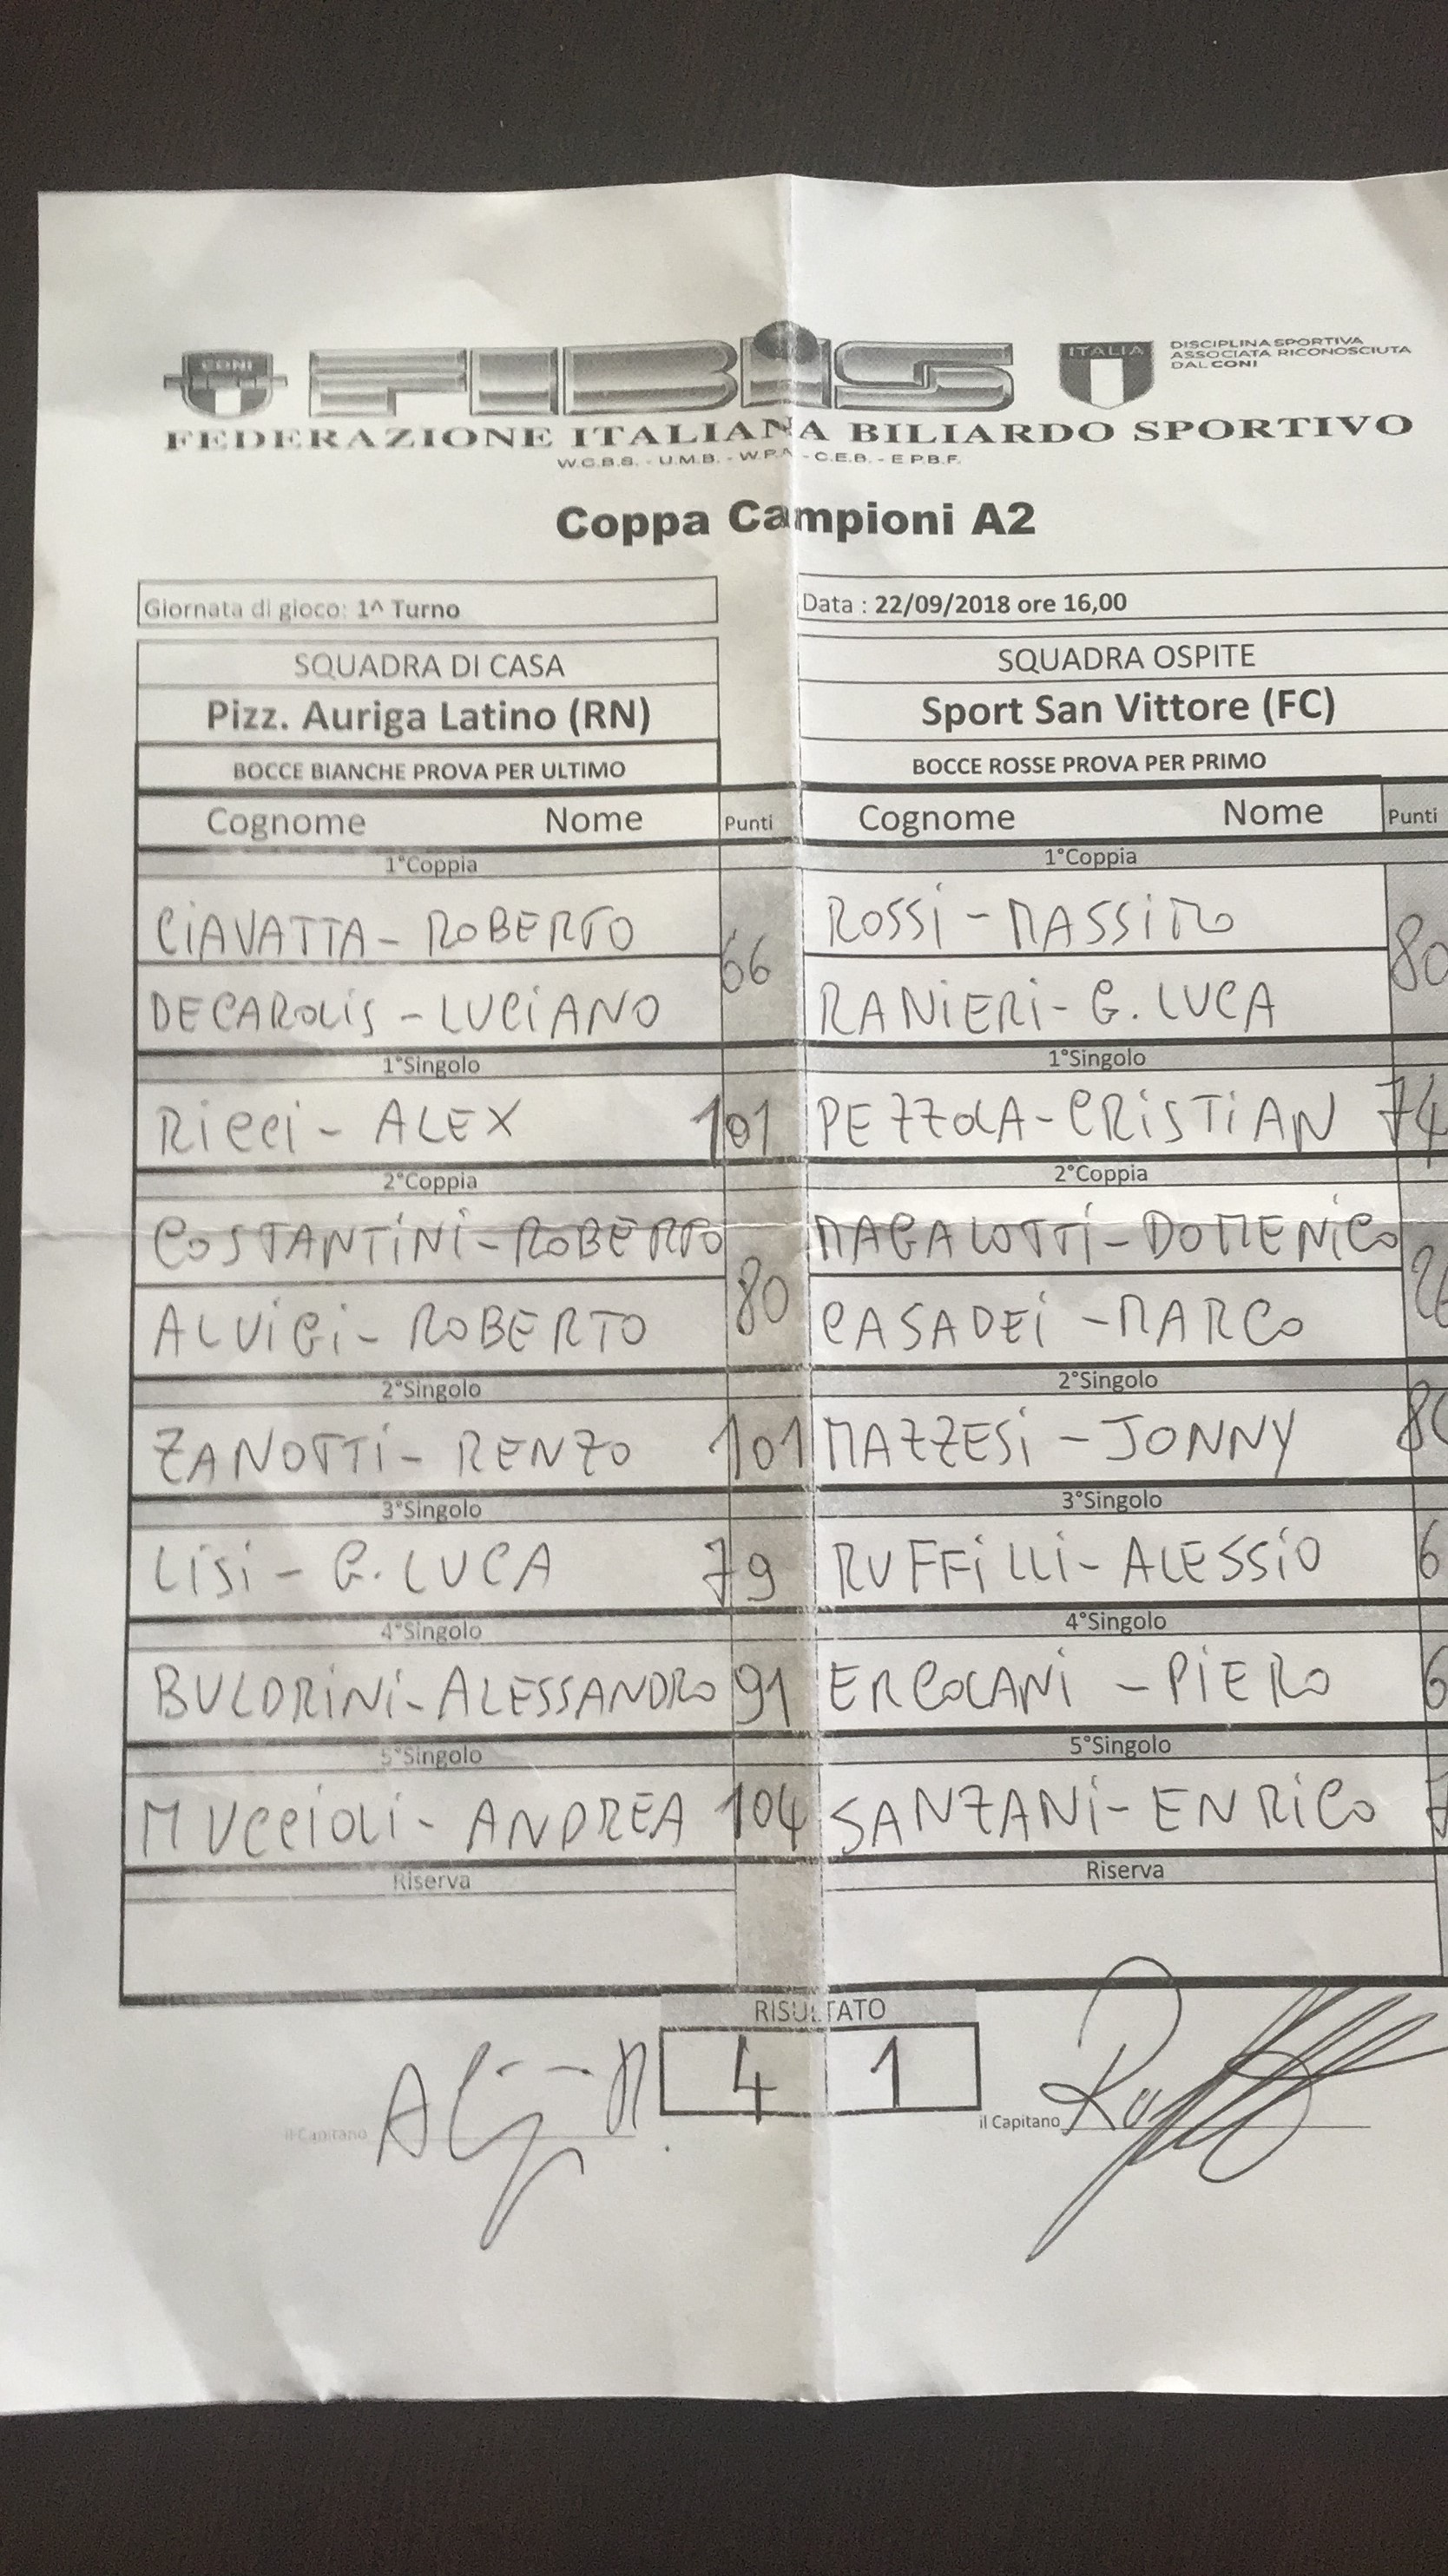 CONI FIBIS ITALIA DISCIPLINA SPORTIVA
ASSOCIATA RICONOSCIUTA
DAL CONI
FEDERAZIONE ITALIANA BILIARDO SPORTIVO
W.C.B.S. - U.M.B. - W.P.A. - C.E.B. - E.P.B.F.
Coppa Campioni A2
Giornata di gioco: 1^ Turno Data : 22/09/2018 ore 16,00
SQUADRA DI CASA SQUADRA OSPITE
Pizz. Auriga Latino (RN) Sport San Vittore (FC)
BOCCE BIANCHE PROVA PER ULTIMO BOCCE ROSSE PROVA PER PRIMO
Cognome Nome Punti Cognome Nome Punti
1°Coppia 1°Coppia
CIAVATTA - ROBERTO 66 ROSSI - MASSIMO 80
DECAROLIS - LUCIANO RANIERI - G. LUCA
1°Singolo 1°Singolo
RICCI - ALEX 101 PEZZOLA - CRISTIAN 74
2°Coppia 2°Coppia
COSTANTINI - ROBERTO 80 MAGALOTTI - DOMENICO
ALVIGI - ROBERTO CASADEI - MARCO
2°Singolo 2°Singolo
ZANOTTI - RENZO 101 MAZZESI - JONNY
3°Singolo 3°Singolo
LISI - G. LUCA 79 RUFFILLI - ALESSIO
4°Singolo 4°Singolo
BULDRINI - ALESSANDRO 91 ERCOLANI - PIERO
5°Singolo 5°Singolo
MUCCIOLI - ANDREA 104 SANZANI - ENRICO
Riserva Riserva
RISULTATO
4 1
il Capitano il Capitano